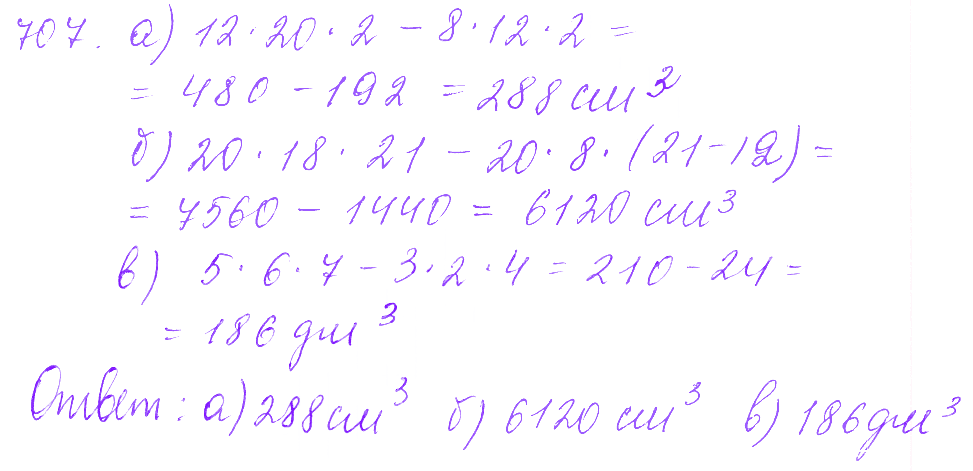 707. а) 12·20·2 – 8·12·2 =
= 480 – 192 = 288 см³
б) 20·18·21 – 20·8·(21–12) =
= 7560 – 1440 = 6120 см³
в) 5·6·7 – 3·2·4 = 210 – 24 =
= 186 дм³
Ответ: а) 288 см³ б) 6120 см³ в) 186 дм³